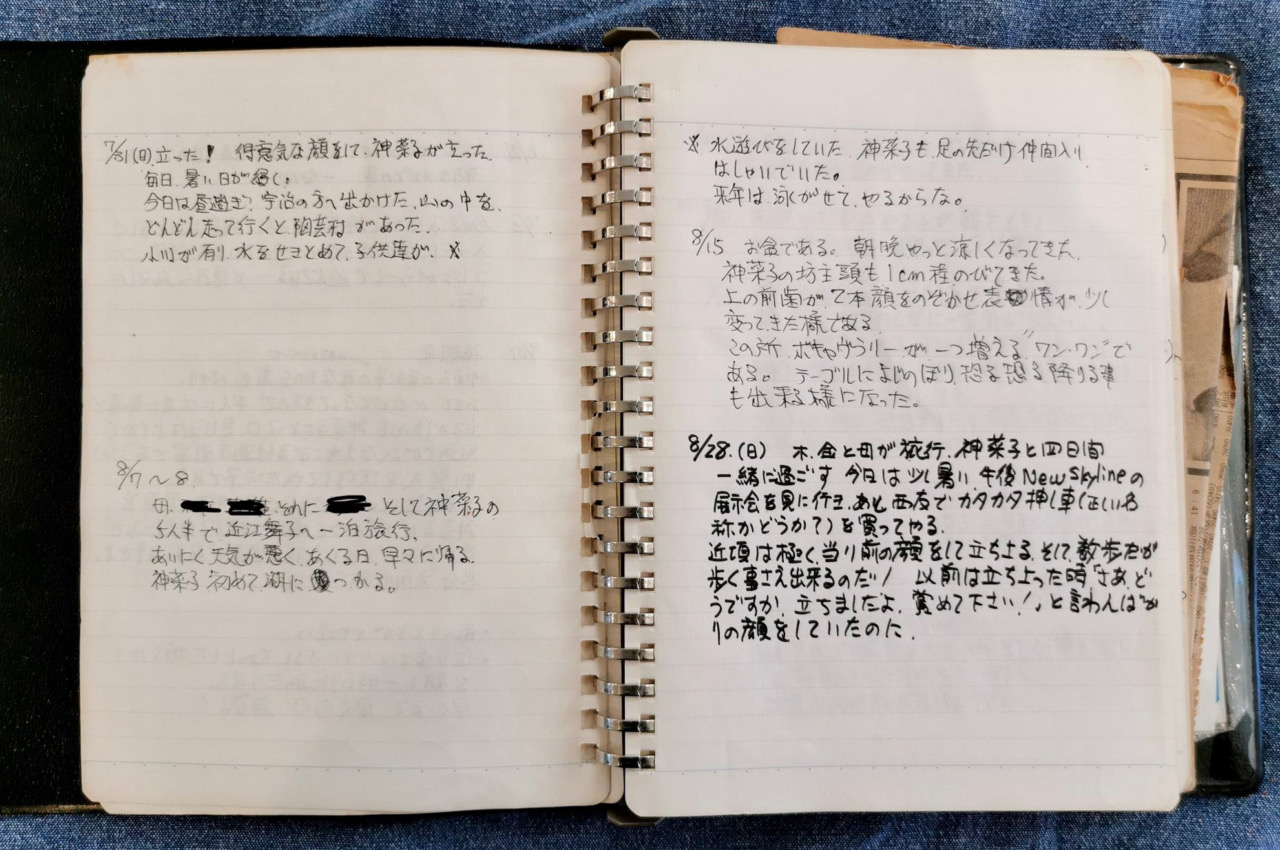 7/31(日)立った! 得意気な顔をして、神菜子が立った。
毎日、暑い日が続く。
今日は昼過ぎ、宇治の方へ出かけた、山の中を、
どんどん走って行くと陶芸村があった。
小川が有り、水をせきとめて、子供達が、※
8/7〜8
母、それにとして神菜子の
5人半で近江舞子へ一泊旅行。
あいにく天気が悪く、あくる日、早々に帰る。
神菜子初めて湖につかる。
※ 水遊びをしていた、神菜子も、足の先だけ仲間入り
はしゃいでいた。
来年は泳がせて、やるからな。
8/15 お盆である。朝晩やっと涼しくなってきた、
神菜子の坊主頭も1cm程のびてきた。
上の前歯が2本顔をのぞかせ表情が、少し
変ってきた様である。
この所、ボキャヴラリーが、一つ増える"ワン・ワン"で
ある。 テーブルによじのぼり、恐る恐る降りる事
も出来る様になった。
8/28.(日) 木、金と母が旅行、神菜子と四日間
一緒に過ごす 今日は少し暑い、午後New Skylineの
展示会を見に行き、あと、西友でカタカタ押し車(正しい名
称かどうか?)を買ってやる。
近頃は極く、当り前の顔をして立ち上る、そして、数歩だが
歩く事さえ出来るのだ! 以前は立ち上った時「さあ、ど
うですか、立ちましたよ、賞めて下さい!」と言わんばか
りの顔をしていたのに、